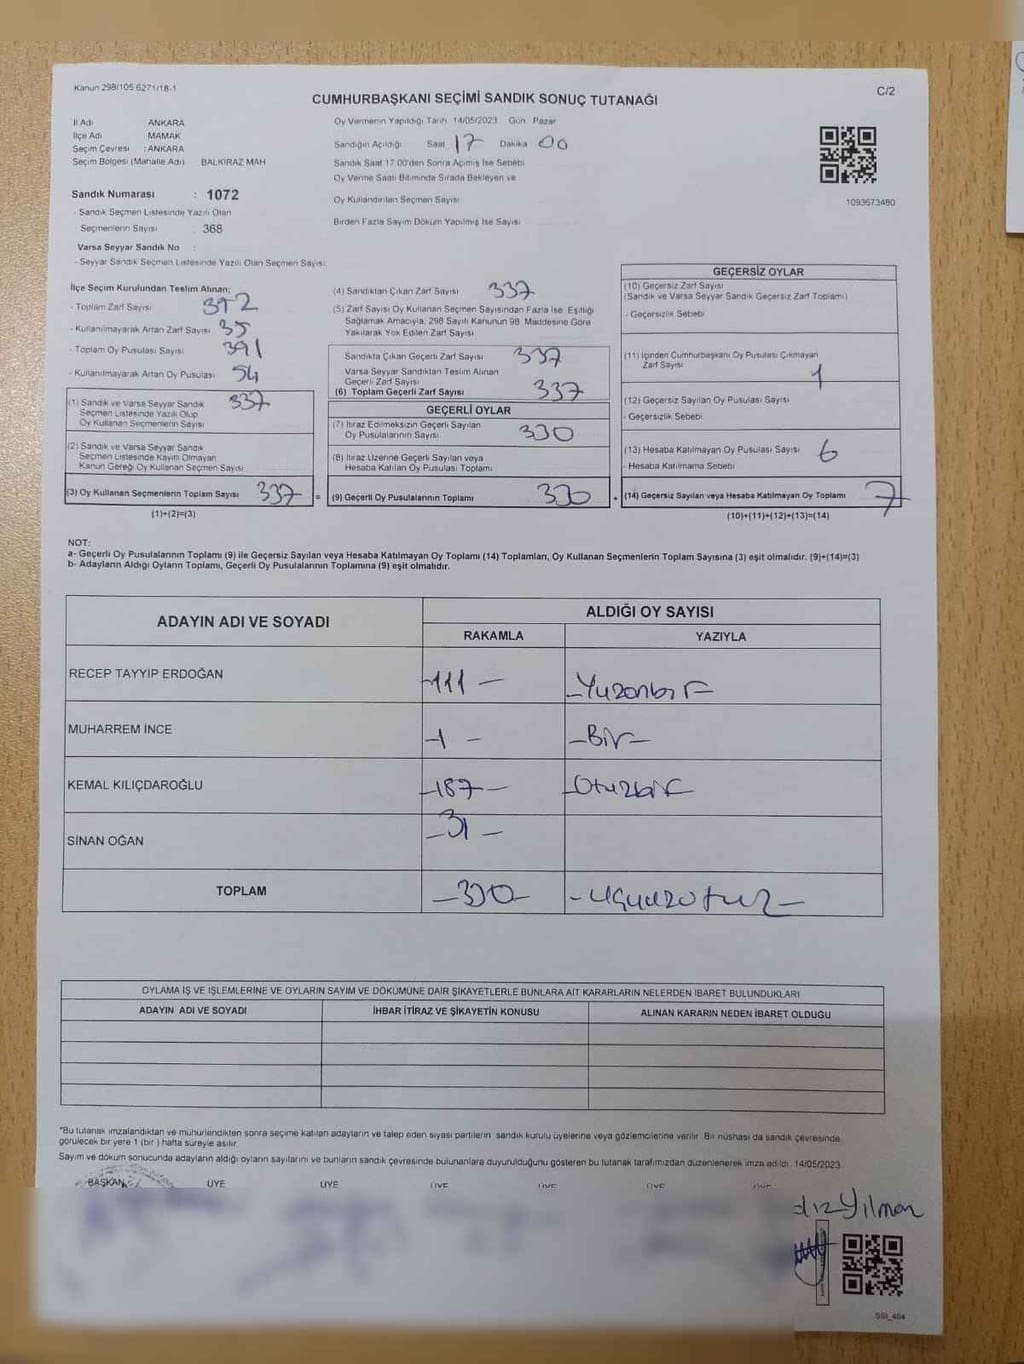 Kanun 298/105 6271/18-1
CUMHURBAŞKANI SEÇİMİ SANDIK SONUÇ TUTANAĞI
C/2
İl Adı ANKARA
İlçe Adı MAMAK
Seçim Çevresi : ANKARA
Seçim Bölgesi (Mahalle Adı) BALKIRAZ MAH
Sandık Numarası : 1072
- Sandık Seçmen Listesinde Yazılı Olan
Seçmenlerin Sayısı 368
Varsa Seyyar Sandık No :
- Seyyar Sandık Seçmen Listesinde Yazılı Olan Seçmen Sayısı:
Oy Vermenin Yapıldığı Tarih 14/05/2023 Gün Pazar
Sandığın Açıldığı Saat 17 Dakika 00
Sandık Saat 17.00'den Sonra Açılmış İse Sebebi
Oy Verme Saati Bitiminde Sırada Bekleyen ve
Oy Kullandırılan Seçmen Sayısı
Birden Fazla Sayım Döküm Yapılmış İse Sayısı
1093673480
İlçe Seçim Kurulundan Teslim Alınan;
- Toplam Zarf Sayısı 372
- Kullanılmayarak Artan Zarf Sayısı 35
- Toplam Oy Pusulası Sayısı 391
- Kullanılmayarak Artan Oy Pusulası 54
(1) Sandık ve Varsa Seyyar Sandık 337
Seçmen Listesinde Yazılı Olup
Oy Kullanan Seçmenlerin Sayısı
(2) Sandık ve Varsa Seyyar Sandık
Seçmen Listesinde Kayıtlı Olmayan
Kanun Gereği Oy Kullanan Seçmen Sayısı
(3) Oy Kullanan Seçmenlerin Toplam Sayısı 337 =
(1)+(2)=(3)
(4) Sandıktan Çıkan Zarf Sayısı 337
(5) Zarf Sayısı Oy Kullanan Seçmen Sayısından Fazla İse, Eşitliği
Sağlamak Amacıyla, 298 Sayılı Kanunun 98. Maddesine Göre
Yakılarak Yok Edilen Zarf Sayısı
Sandıkta Çıkan Geçerli Zarf Sayısı 337
Varsa Seyyar Sandıktan Teslim Alınan
Geçerli Zarf Sayısı
(6) Toplam Geçerli Zarf Sayısı 337
GEÇERLİ OYLAR
(7) İtiraz Edilmeksizin Geçerli Sayılan
Oy Pusulalarının Sayısı 330
(8) İtiraz Üzerine Geçerli Sayılan veya
Hesaba Katılan Oy Pusulası Toplamı
(9) Geçerli Oy Pusulalarının Toplamı 330 +
GEÇERSİZ OYLAR
(10) Geçersiz Zarf Sayısı
(Sandık ve Varsa Seyyar Sandık Geçersiz Zarf Toplamı)
- Geçersizlik Sebebi
(11) İçinden Cumhurbaşkanı Oy Pusulası Çıkmayan
Zarf Sayısı 1
(12) Geçersiz Sayılan Oy Pusulası Sayısı
- Geçersizlik Sebebi
(13) Hesaba Katılmayan Oy Pusulası Sayısı 6
- Hesaba Katılmama Sebebi
(14) Geçersiz Sayılan veya Hesaba Katılmayan Oy Toplamı 7
(10)+(11)+(12)+(13)=(14)
NOT:
a- Geçerli Oy Pusulalarının Toplamı (9) ile Geçersiz Sayılan veya Hesaba Katılmayan Oy Toplamı (14) Toplamları, Oy Kullanan Seçmenlerin Toplam Sayısına (3) eşit olmalıdır. (9)+(14)=(3)
b- Adayların Aldığı Oyların Toplamı, Geçerli Oy Pusulalarının Toplamına (9) eşit olmalıdır.
ADAYIN ADI VE SOYADI
ALDIĞI OY SAYISI
RAKAMLA YAZIYLA
RECEP TAYYİP ERDOĞAN -111- -Yüzonbir
MUHARREM İNCE -1- -Bir-
KEMAL KILIÇDAROĞLU -187- -Otuzbir
SİNAN OĞAN -31-
TOPLAM -330- -üçyüzotuz-
OYLAMA İŞ VE İŞLEMLERİNE VE OYLARIN SAYIM VE DÖKÜMÜNE DAİR ŞİKAYETLERLE BUNLARA AİT KARARLARIN NELERDEN İBARET BULUNDUKLARI
ADAYIN ADI VE SOYADI İHBAR İTİRAZ VE ŞİKAYETİN KONUSU ALINAN KARARIN NEDEN İBARET OLDUĞU
"Bu tutanak imzalandıktan ve mühürlendikten sonra seçime katılan adayların ve talep eden siyasi partilerin sandık kurulu üyelerine veya gözlemcilerine verilir. Bir nüshası da sandık çevresinde
görülecek bir yere 1 (bir ) hafta süreyle asılır.
Sayım ve döküm sonucunda adayların aldığı oyların sayılarını ve bunların sandık çevresinde bulunanlara duyurulduğunu gösteren bu tutanak tarafımızdan düzenlenerek imza edildi. 14/05/2023
BAŞKAN ÜYE ÜYE ÜYE ÜYE ÜYE ÜYE
dız Yılman
SSI_404